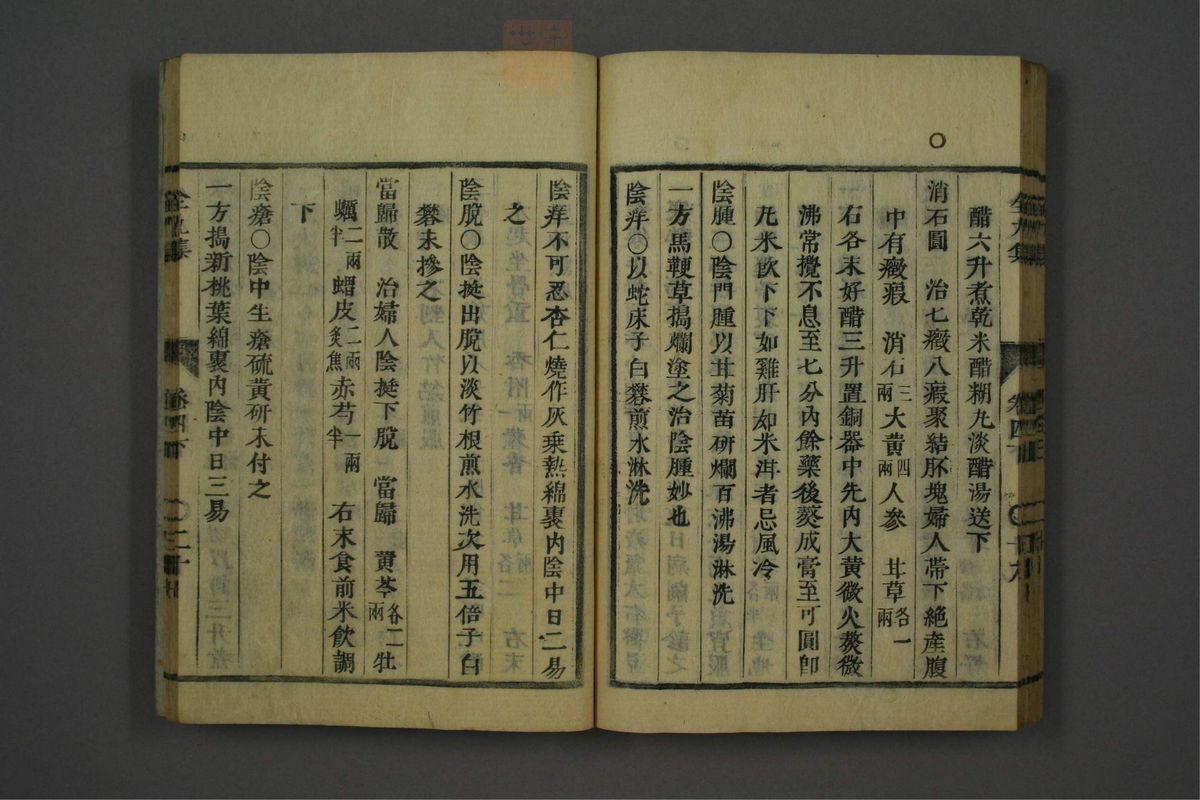 醋六升煮乾米醋糊丸淡醋湯送下
消石圓 治七癥八瘕聚結胚塊婦人帶下絶產腹
中有癥瘕 消石三兩大黄四兩人參 甘草各一兩
右各末好醋三升置銅器中先内大黄微火熬微
沸常攪不息至七分内餘藥後熬成膏至可圓卽
丸米飲下下如雞肝如米泔者忌風冷
陰腫〇陰門腫以甘菊苗研爛百沸湯淋洗
一方馬鞭草搗爛塗之治陰腫妙也
陰痒〇以蛇床子白礬煎水淋洗
陰痒不可忍杏仁燒作灰乘熱綿裹内陰中日二易
之
陰脫〇陰挺出脫以淡竹根煎水洗次用五倍子白
礬末摻之
當歸散 治婦人陰挺下脫 當歸 黄芩各二兩牡
蠣二兩半蝟皮二兩炙焦赤芍一兩半 右末食前米飲調
下
陰瘡〇陰中生瘡硫黄研末付之
一方搗新桃葉綿裹内陰中日三易
全九集
卷四下
二十